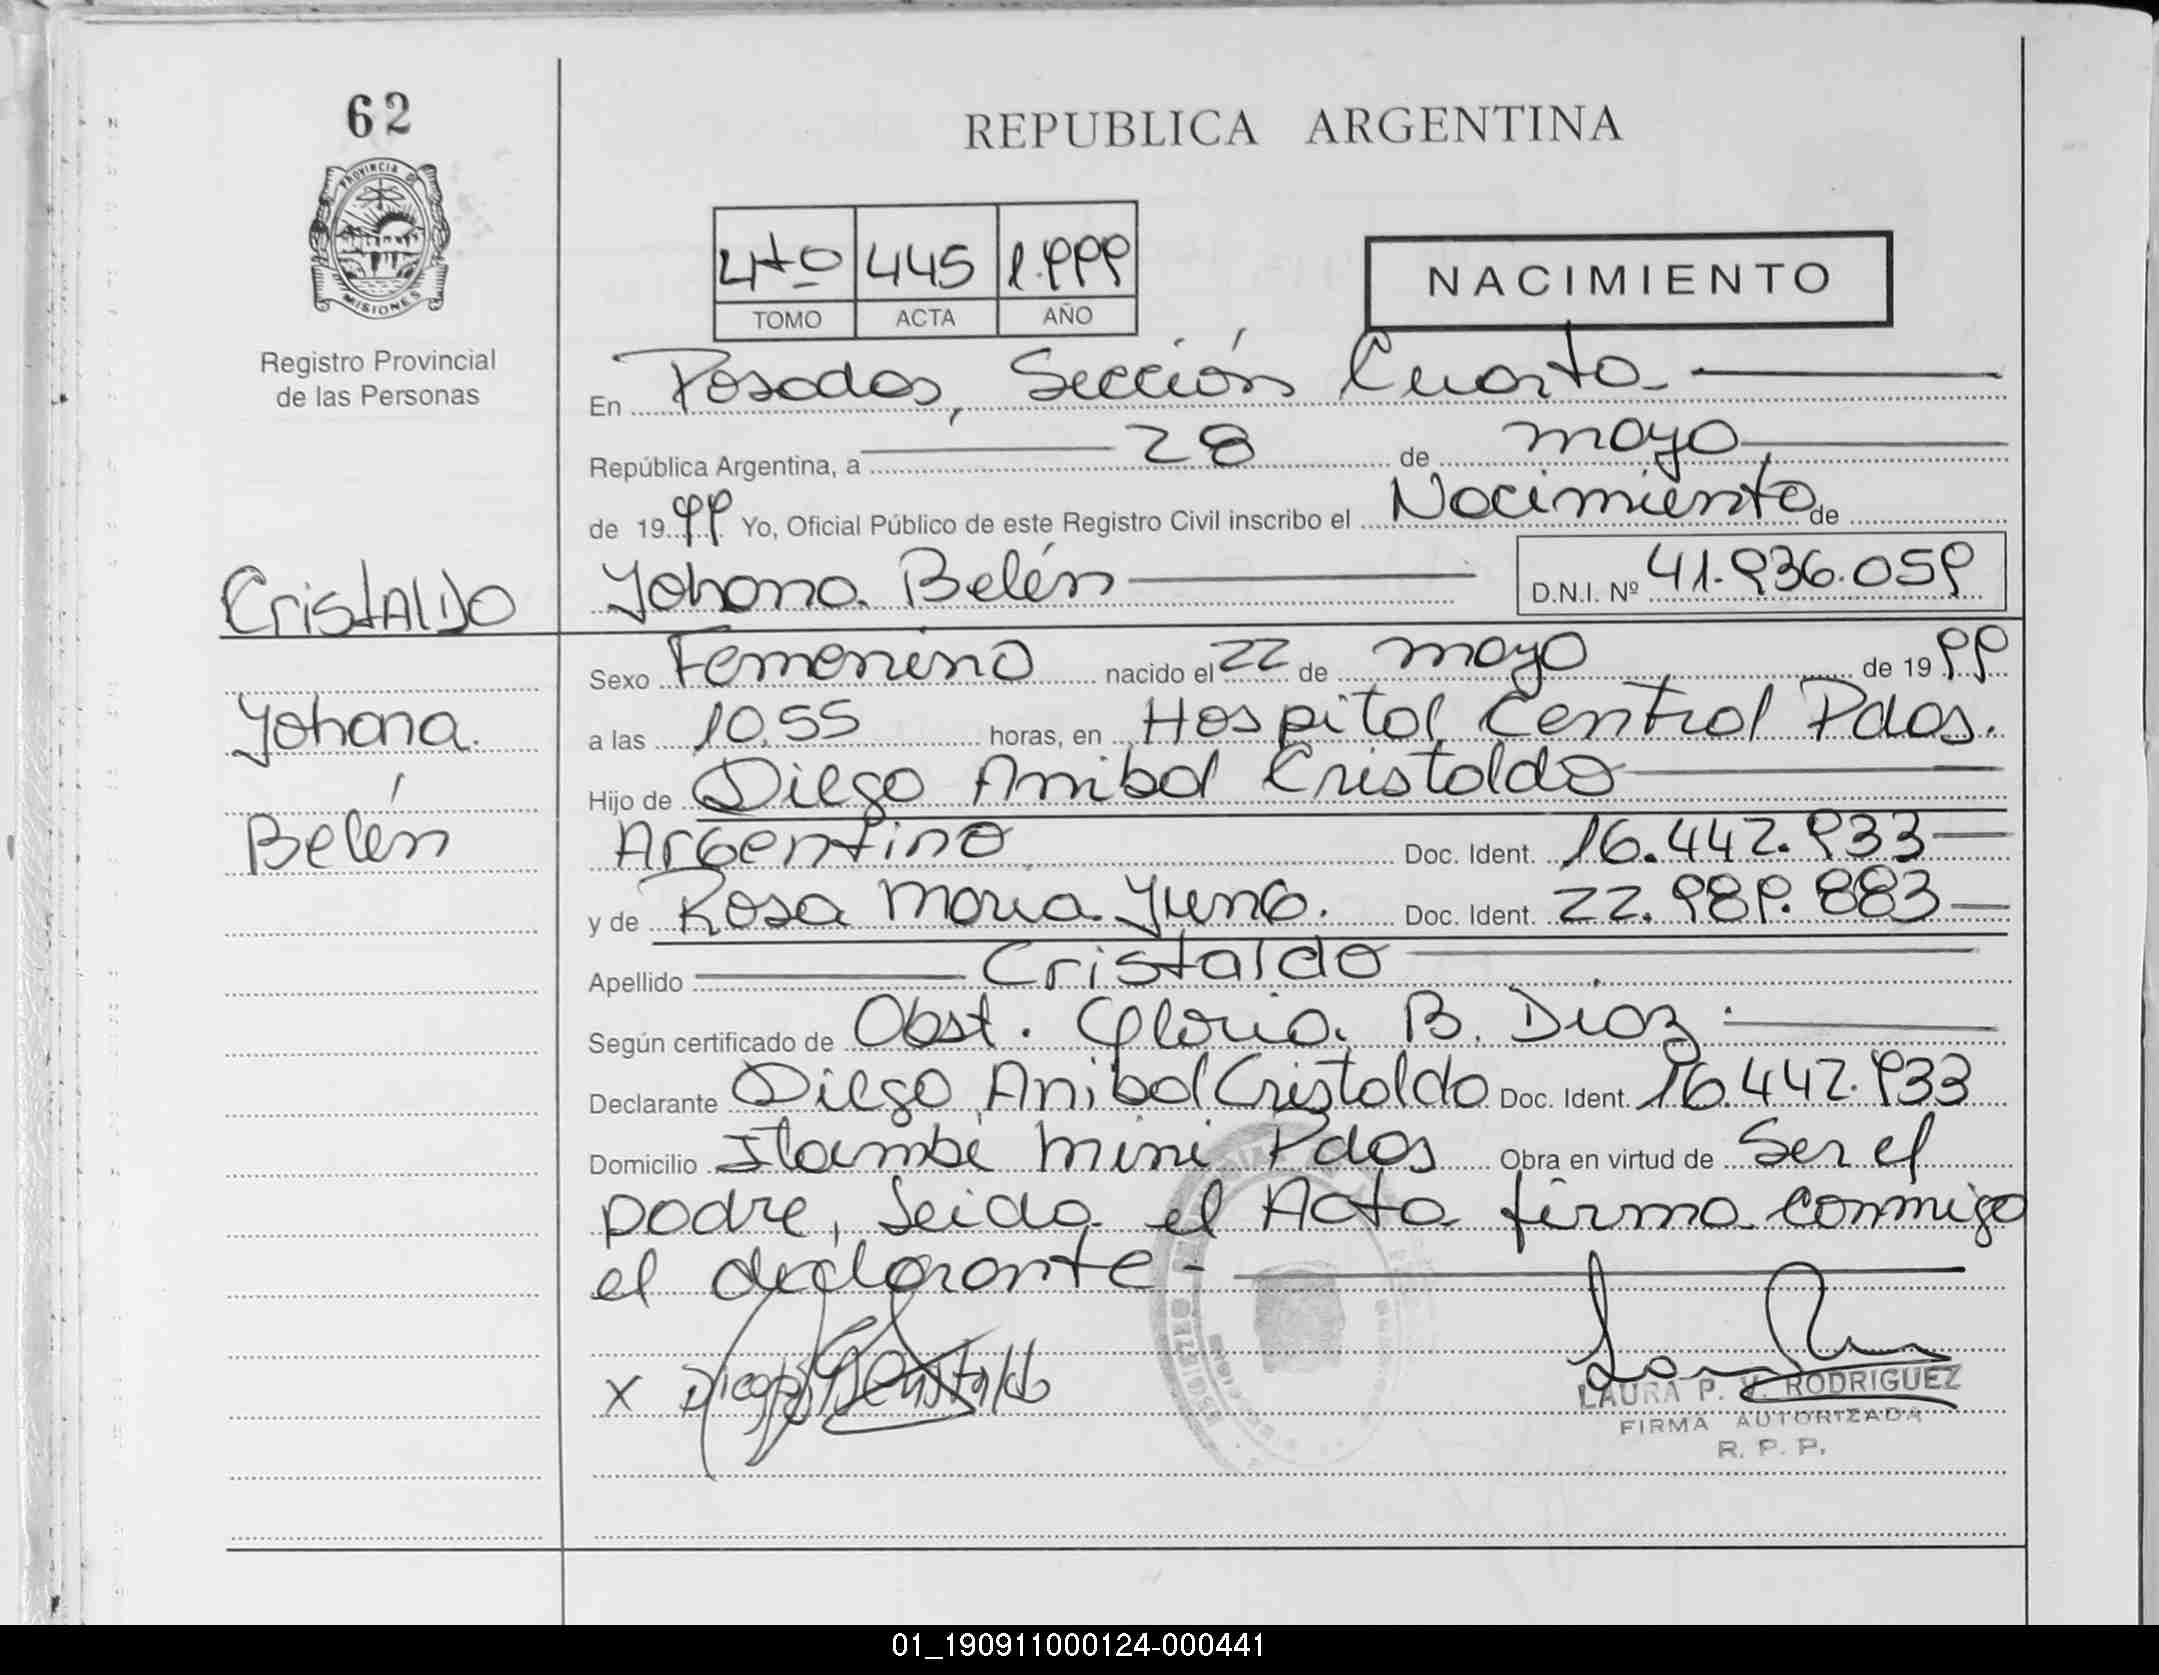 62
PROVINCIA DE
MISIONES
Registro Provincial
de las Personas
REPUBLICA ARGENTINA
4to 445 1.999
TOMO ACTA AÑO
NACIMIENTO
En Posadas, Sección Cuarta
República Argentina, a 28 de mayo
de 1999 Yo, Oficial Público de este Registro Civil inscribo el Nacimiento de
CristALDO
Yohana Belén D.N.I. Nº 41.936.059
Sexo Femenino nacido el 22 de mayo de 1999
Yohana
a las 10,55 horas, en Hospital Central Pdas.
Hijo de Diego Anibal Cristaldo
Belén
Argentino Doc. Ident. 16.442.933
y de Rosa Maria Doc. Ident. 22.989.883
Apellido Cristaldo
Según certificado de Obst. Gloria B. Diaz
Declarante Diego Anibal Cristaldo Doc. Ident. 16.442.933
Domicilio Itambé mini Pdas Obra en virtud de Ser el
padre, leida el Acta firma conmigo
el declarante -
X
LAURA P. V. RODRIGUEZ
FIRMA AUTORIZADA
R. P. P.
01_190911000124-000441